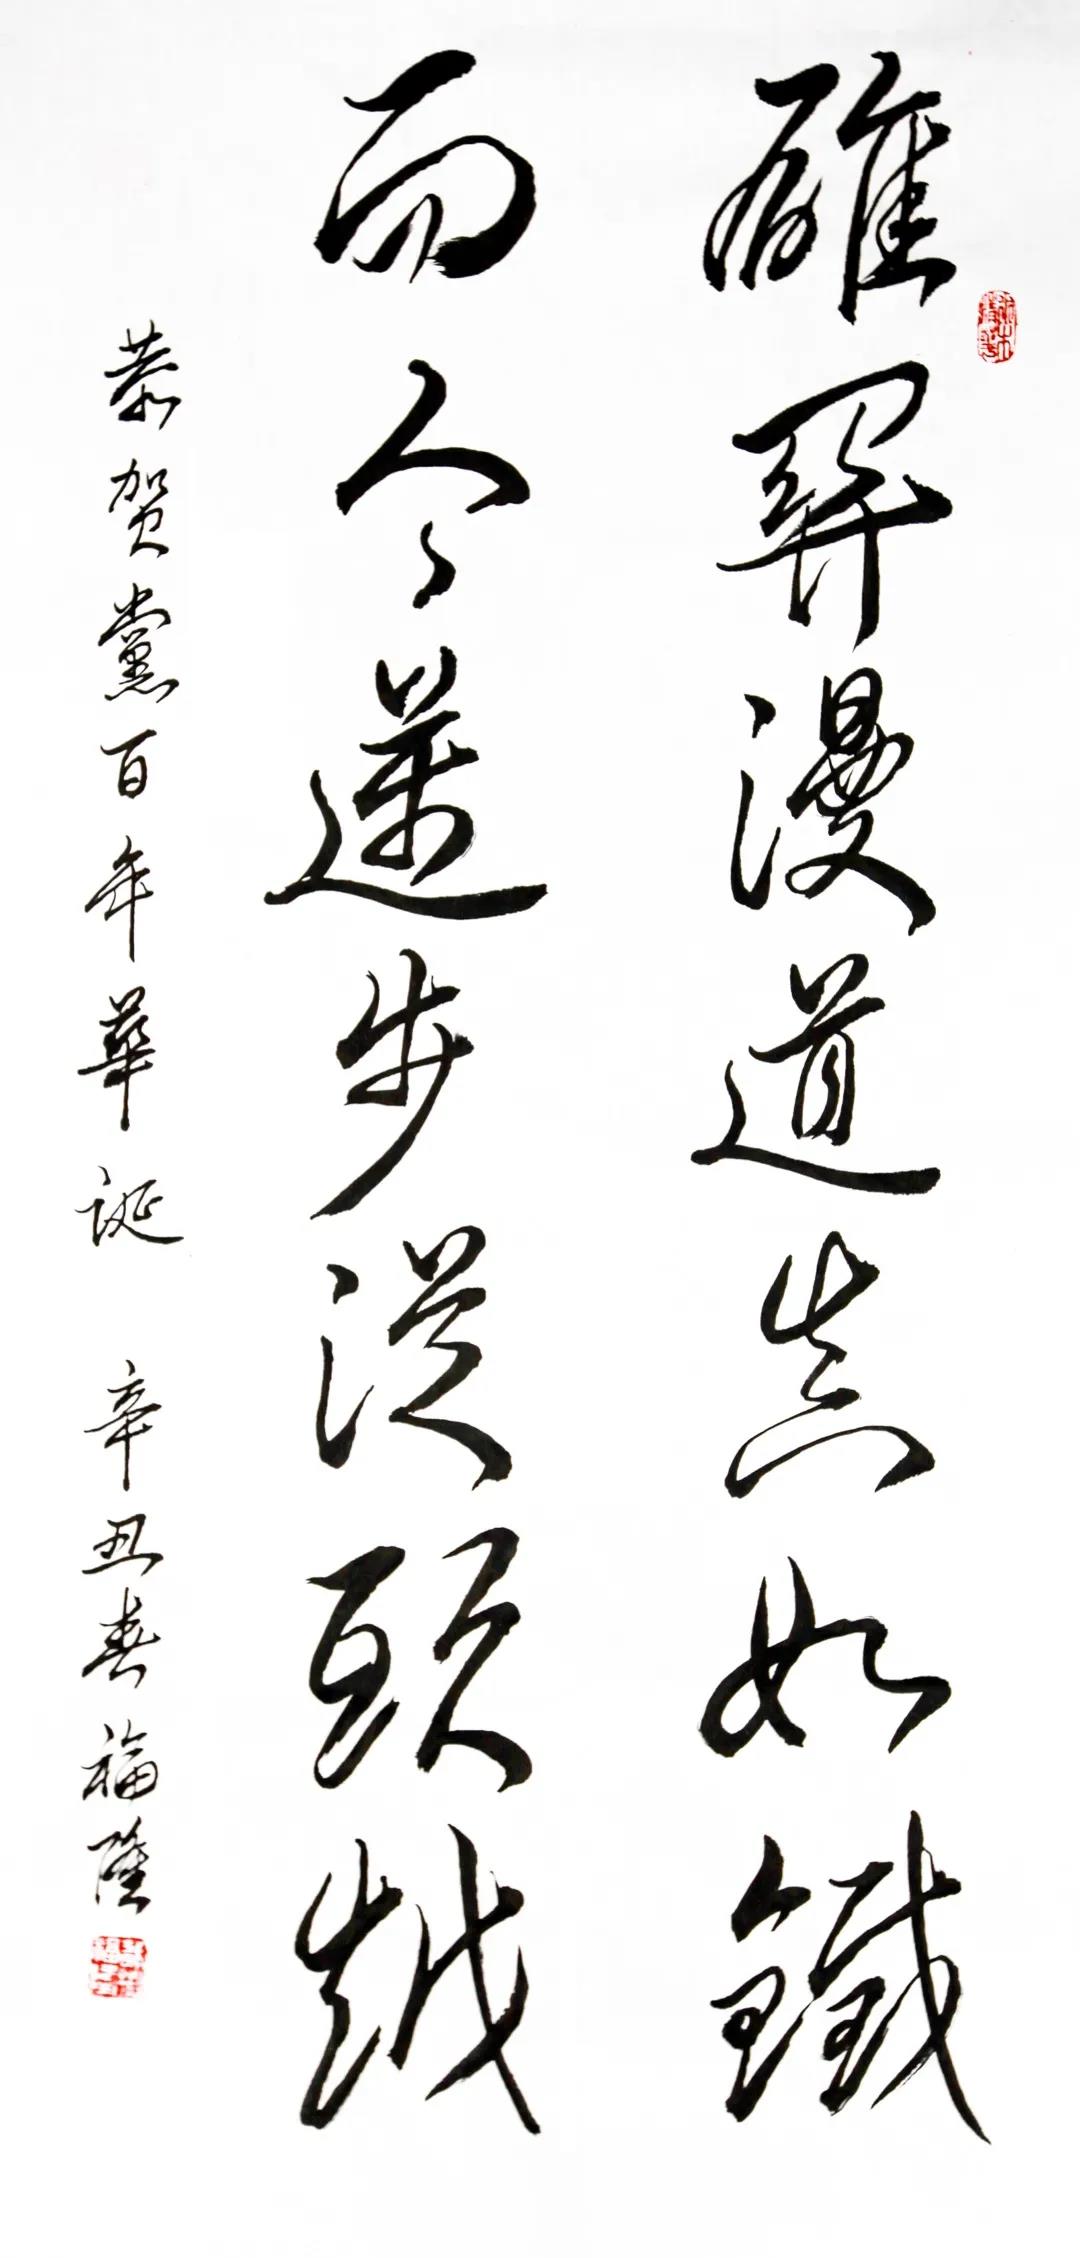 雄關漫道真如鐵
而今邁步從頭越
恭賀黨百年華誕 辛丑春福隆